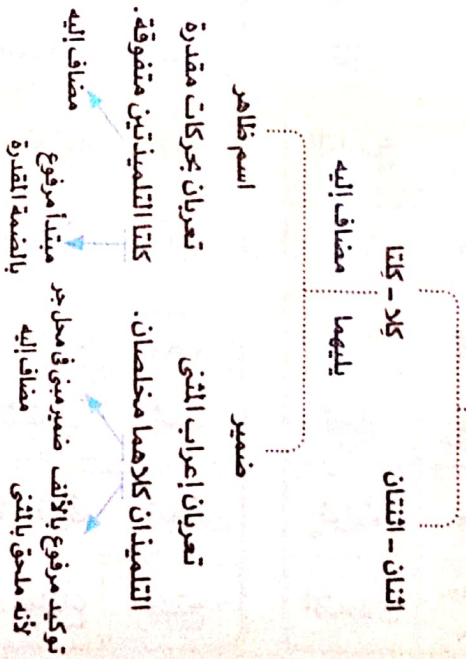 اثنان - اثنتان
كِلا - كِلتا
يليهما مضاف إليه
ضمير
تعربان إعراب المثنى
التلميذان كلاهما مخلصان.
توكيد مرفوع بالألف
لأنه ملحق بالمثنى
ضمير مبنى فى محل جر
مضاف إليه
اسم ظاهر
تعربان بحركات مقدرة
كلتا التلميذتين متفوقة.
مبتدأ مرفوع
بالضمة المقدرة
مضاف إليه